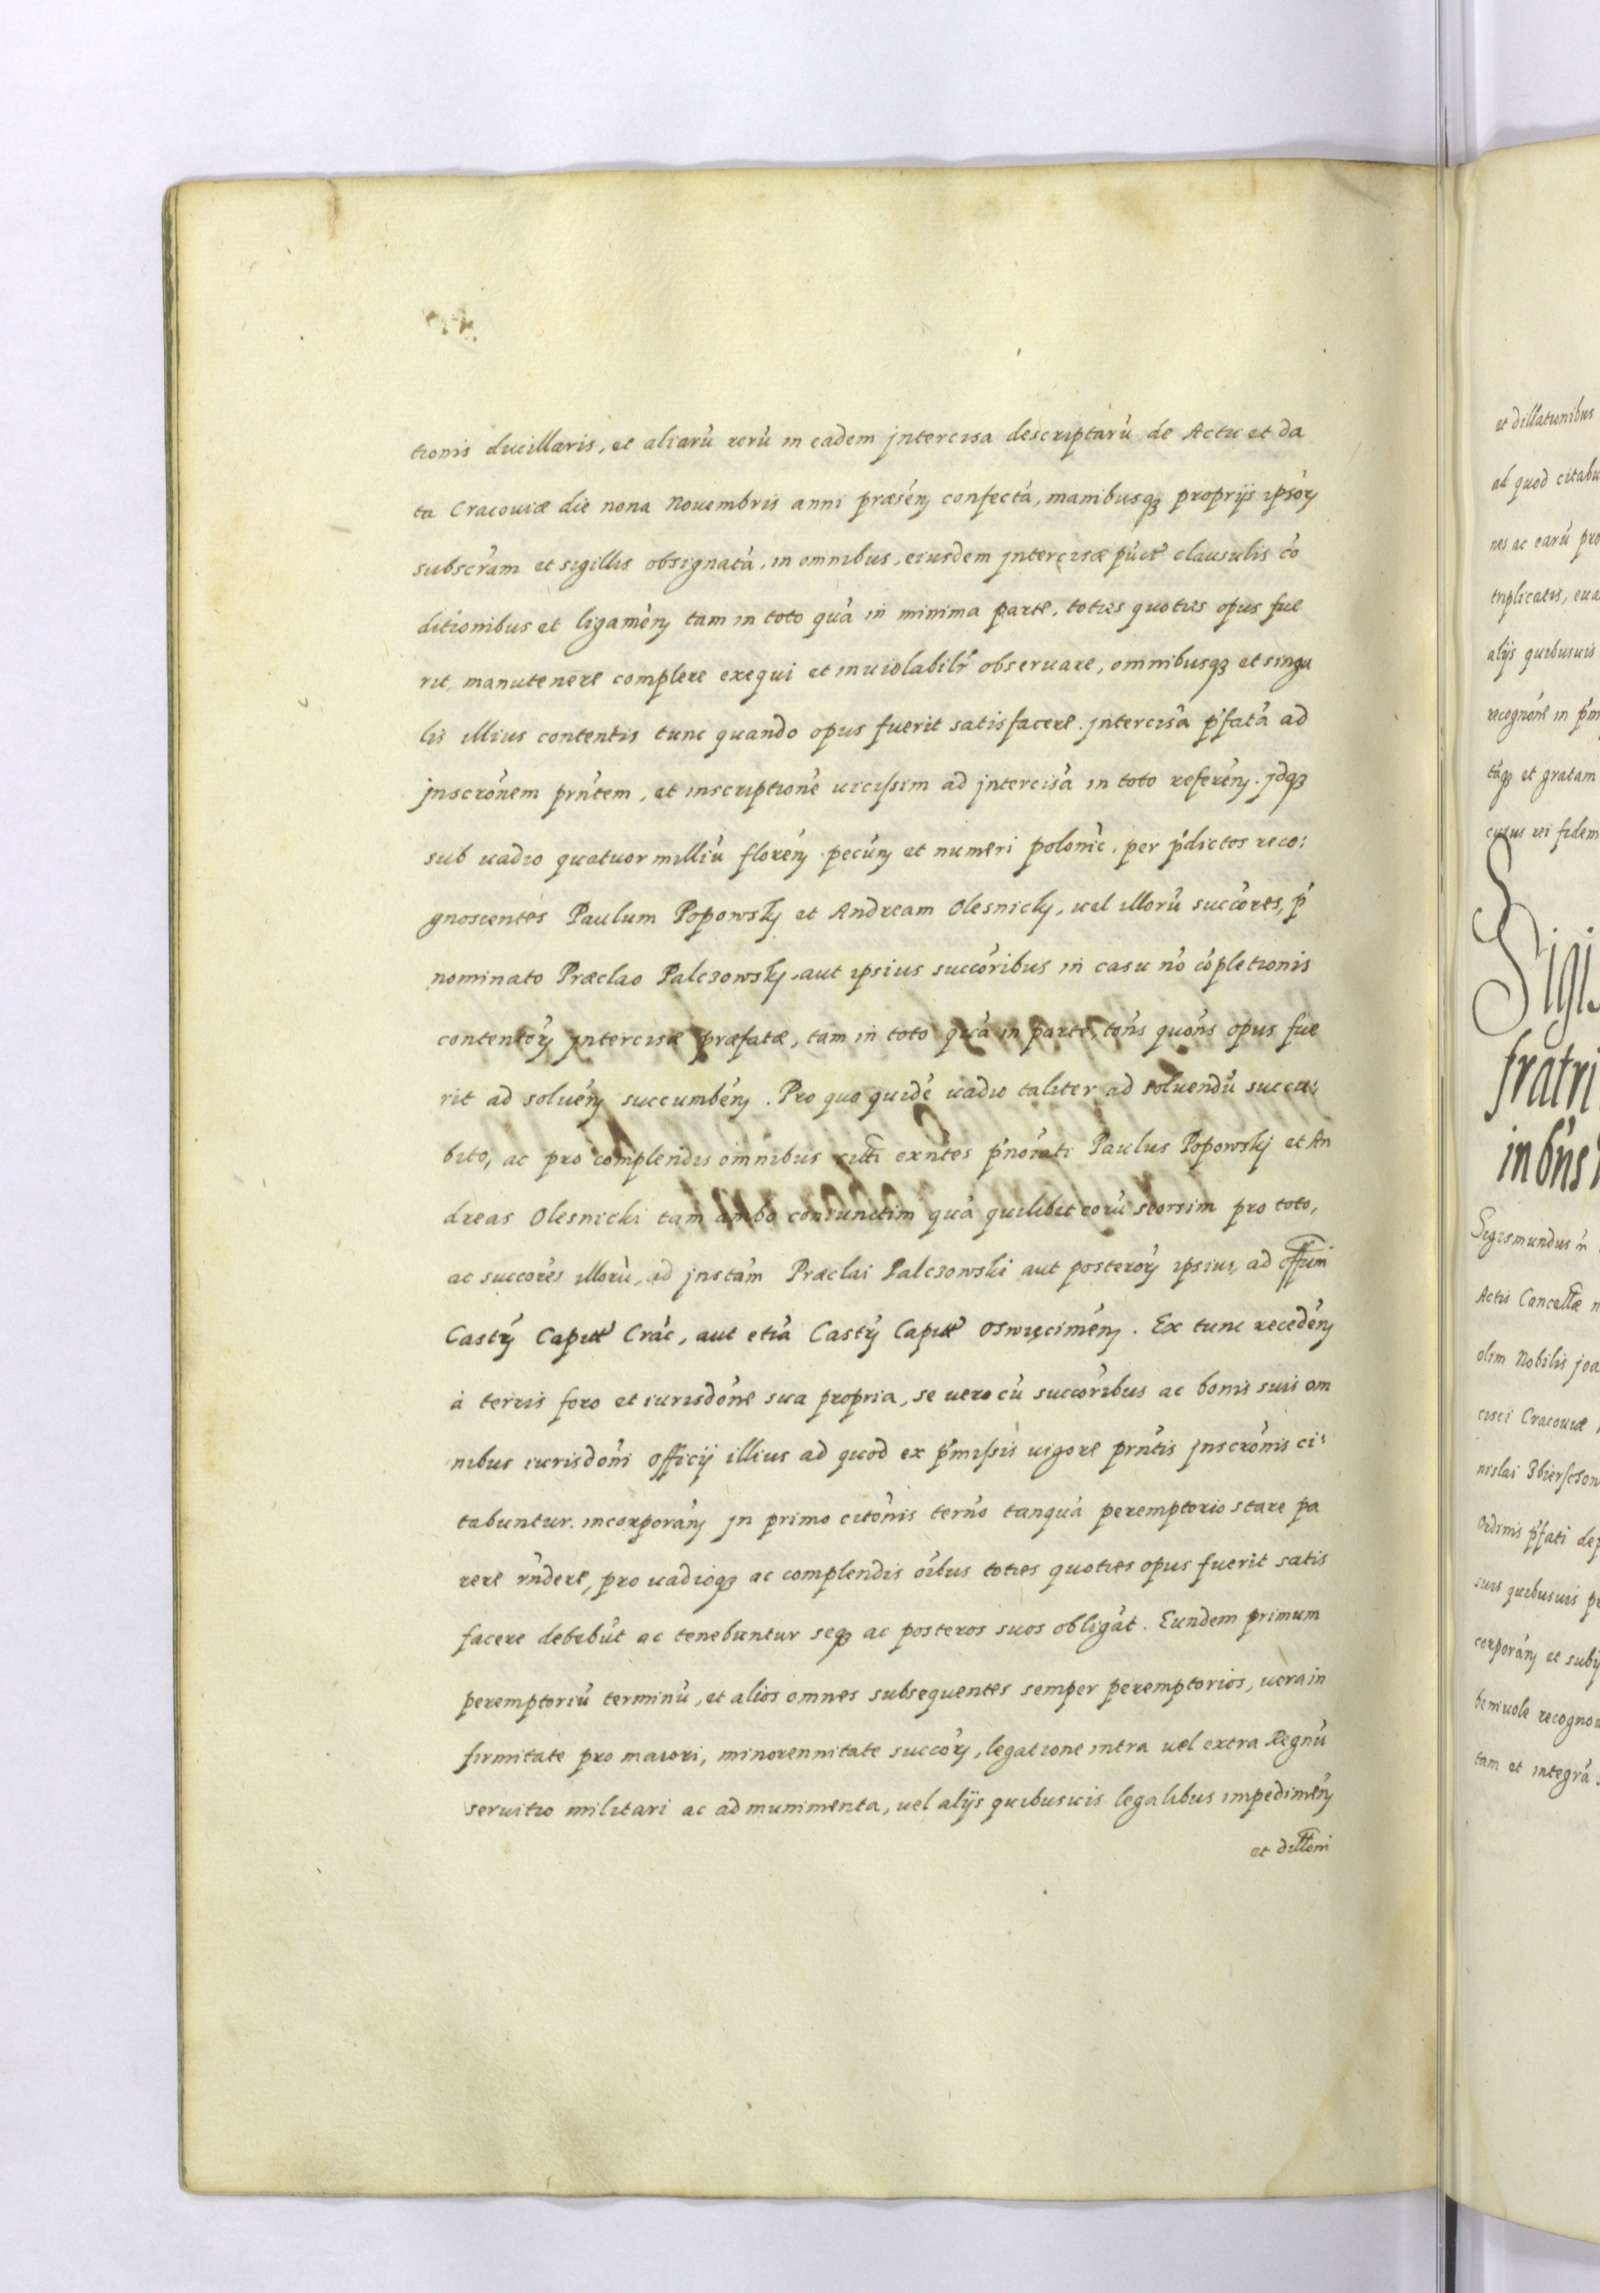 tionis ducillaris, et aliarũ rerũ in eadem intercisa descriptarũ de Actu et da
ta Cracouiæ die nona Nouembris anni præseñ confectã, manibusqȝ proprijs ipsoꝝ
subscr̃am et sigillis obsignatã, in omnibus, eiusdem intercisæ pũct̃ clausulis cõ
ditionibus et ligameñ tam in toto quã in minima parte, toties quoties opus fue
rit, manutenere complere exequi et inuiolabilr̃ obseruare, omnibusqȝ et singu
lis illius contentis tunc quando opus fuerit satisfacere. intercisã p̃fatã ad
jnscrõnem prñtem, et inscriptionẽ uicissim ad jntercisã in toto refereñ. jdqȝ
sub uadio quatuor milliũ floreñ pecuñ et numeri polonic̃. per p̃dictos reco:
gnoscentes Paulum Popowskj et Andream Olesnickj, uel illorũ succõres, p̃
nominato Præclao Palczowskj, aut ipsius succõribus in casu nõ cõpletionis
contentoꝝ jntercisæ præfatæ, tam in toto quã in parte, totñs quotñs opus fue
rit ad solueñ succumbeñ. Pro quo quidẽ uadio taliter ad soluendũ succu:
bito, ac pro complendis omnibus exñtes p̃norãti Paulus Popowskj et An
dreas Olesnicki tam ambo coniunctim quã quilibet eorũ seorsim pro toto,
ac succõres illorũ, ad jnstãm Præclai Palczowski aut posteroꝝ ipsius, ad offum
Castrꝝ Capitt̃ Crac̃, aut etiã Castrꝝ Capitt̃ Oswięcimeñ. Ex tunc recedeñ
à terris foro et iurisdõne sua propria, se uero cũ succõribus ac bonis suis om
nibus iurisdõni Officij illius ad quod ex p̃missis uigore prñtis jnscrõnis ci:
tabuntur. incorporañ jn primo citõnis termõ tanquã peremptorio stare pa
rere rñdere, pro uadioqȝ ac complendis oĩbus toties quoties opus fuerit satis
facere debebũt ac tenebuntur seqȝ ac posteros suos obligãt. Eundem primum
peremptoriũ terminũ, et alios omnes subsequentes semper peremptorios, uera in
firmitate pro maiori, minorennitate succoꝝ, legatione intra uel extra Regnũ
seruitio militari ac ad munimenta, uel alijs quibusuis legalibus impedimeñ
et dillõni
et dillationibus
ad quod citabu
nes ac earũ pro
triplicatis, eua
alijs quibusuis
recognõne in p̃m
tãqȝ et gratam
cuius rei fidem
Sigis
fratri
in bñs
Sigismundus
Actis Cancellæ
olim Nobilis joa
cisci Cracouiæ
nislai
Ordinis p̃fati dep
suis quibusuis
corporañ et subij
beniuole recognou
tam et integrã